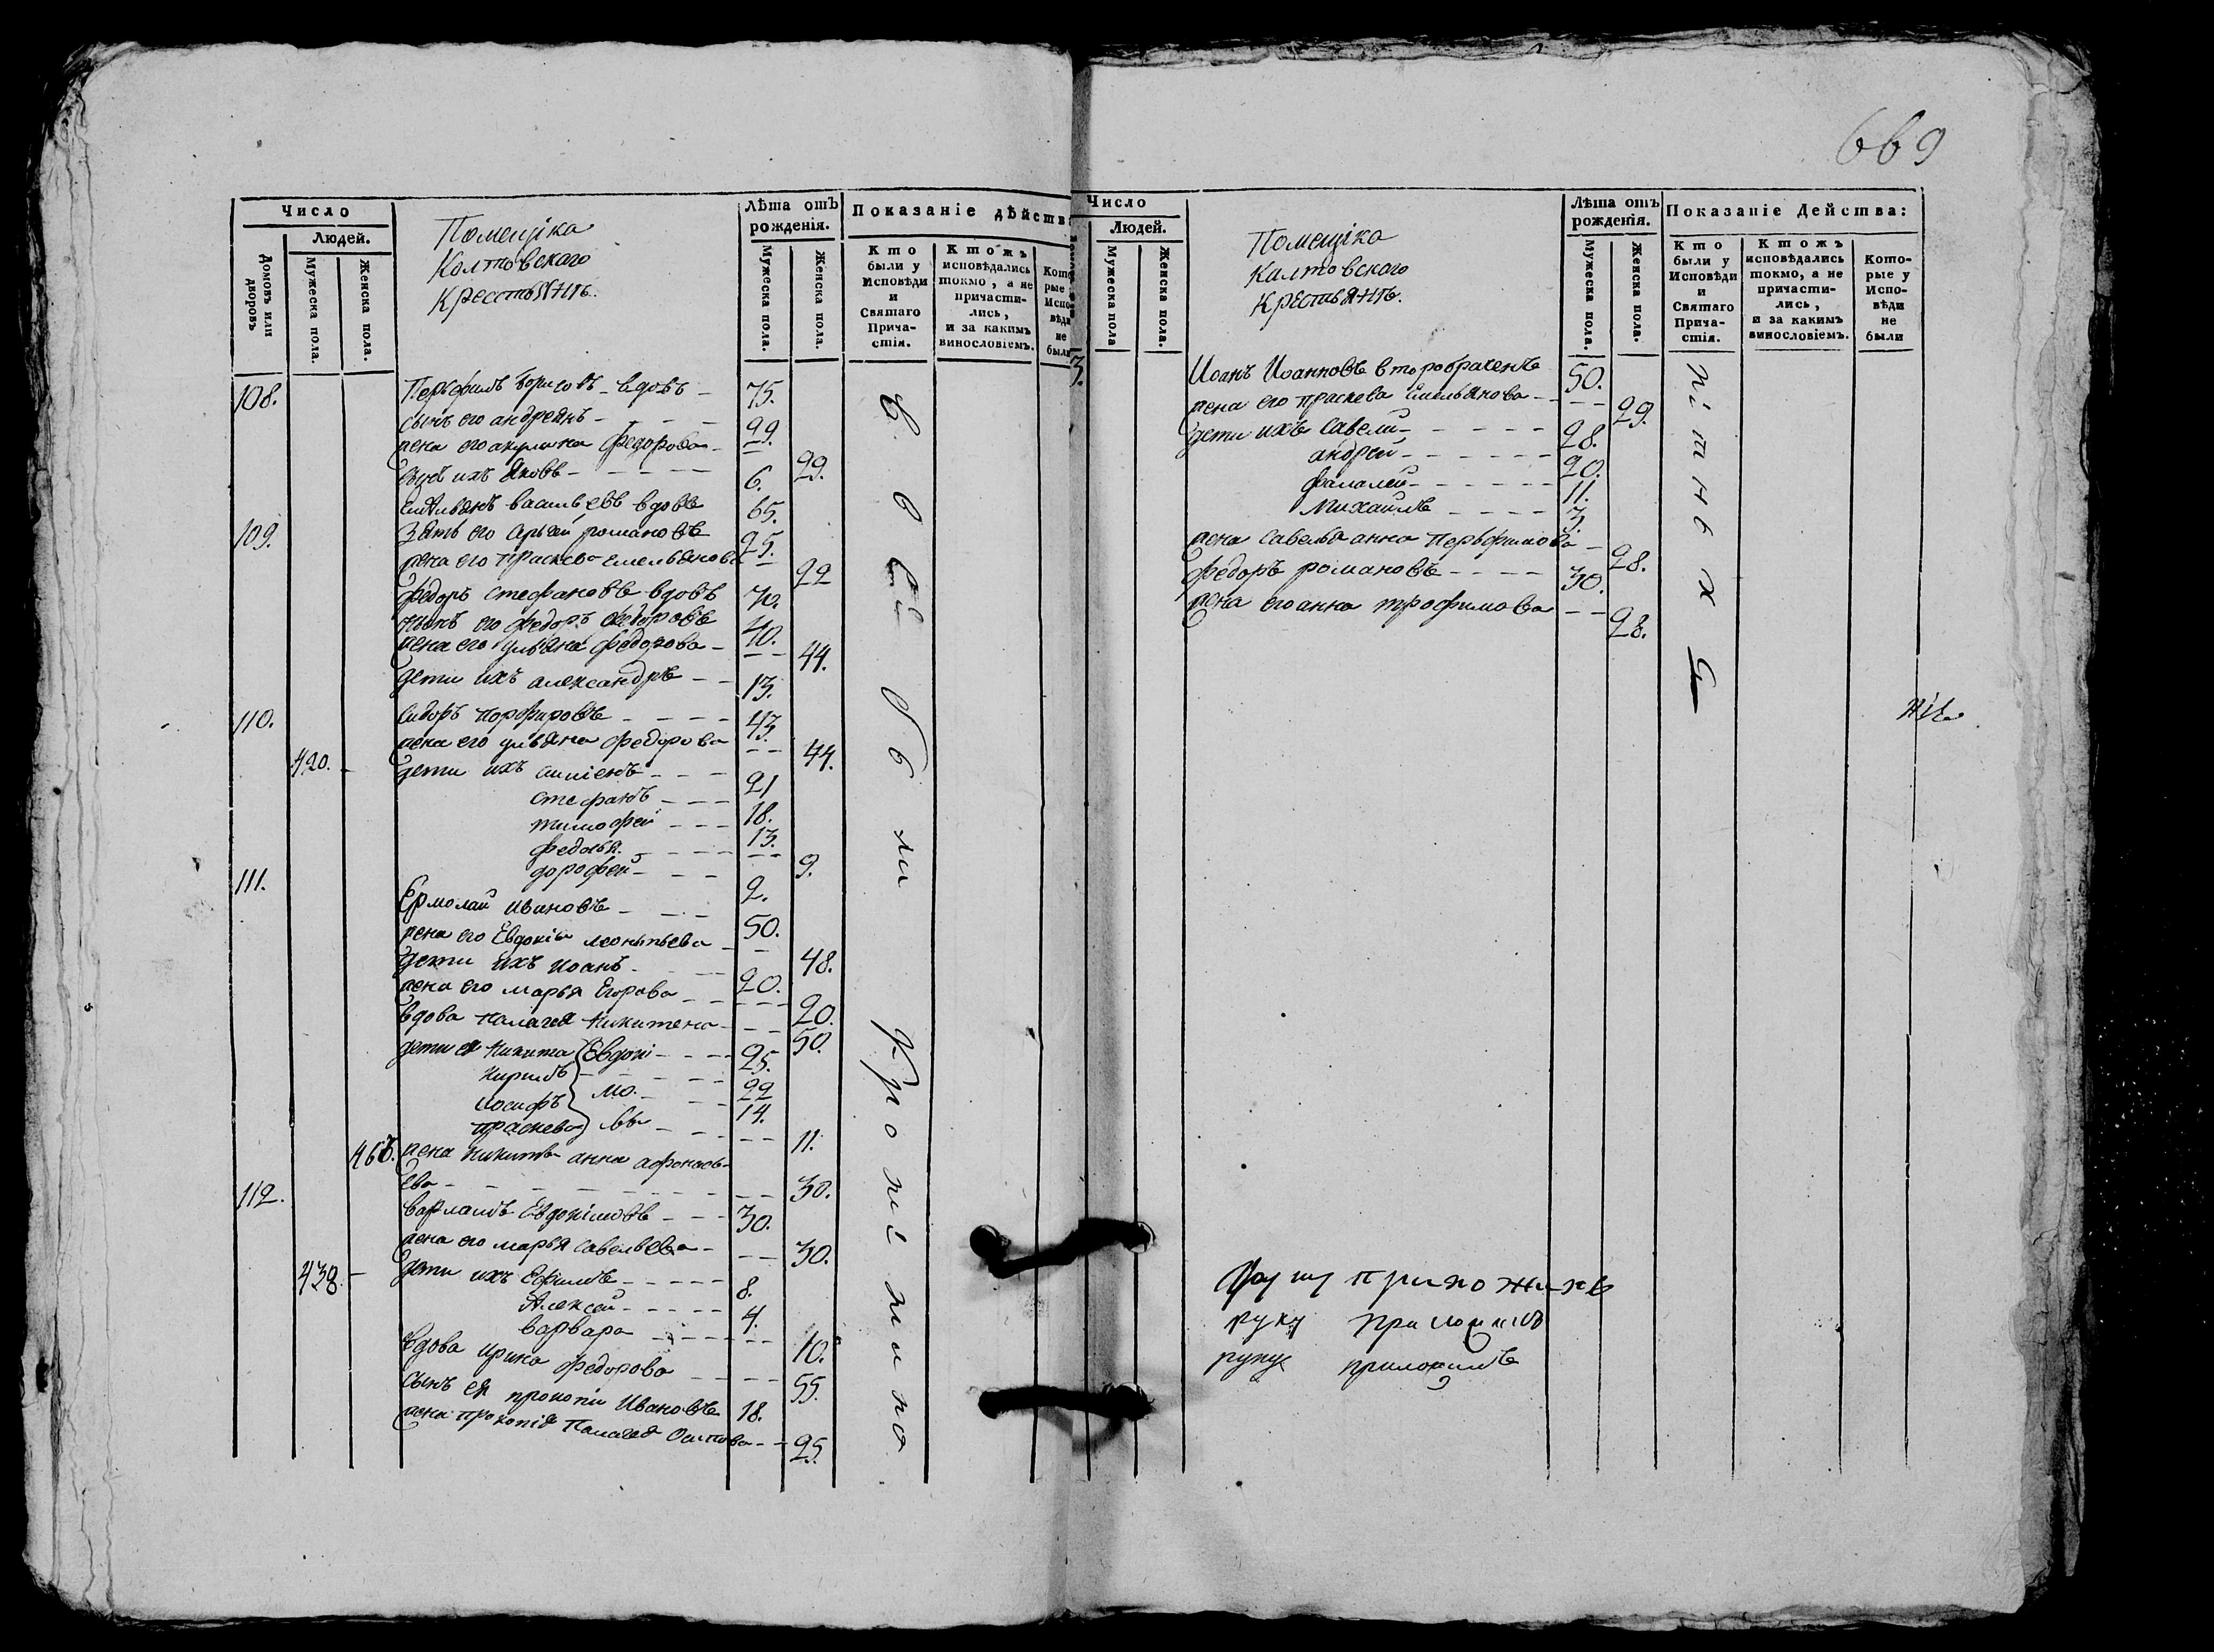 669
Число
Людей.
Домовъ или дворовъ
Мужеска пола.
Женска пола.
Помещіка
Колтовскаго
Крестьянъ.
Лѣта отъ рожденія.
Мужеска пола.
Женска пола.
Показаніе дѣйств
Кто были у Исповѣди и Святаго Прича- стія.
Ктожъ исповѣдались токмо, а не причасти- лись, и за какимъ винословіемъ.
108. Перьфилъ Борисовъ - вдовъ - 75.
сынъ его андреянъ - 29.
жена его акулина федорова - 29.
сынъ ихъ Яковъ - 6.
Емельянъ васильевъ вдовъ 65.
109. зять его сергей романовъ 25.
жена его праскева емельянова 22
федоръ стефановъ вдовъ 70.
сынъ его федоръ федоровъ 40.
жена его ульяна федорова - 44.
дети ихъ александръ - 13.
110. Сидоръ порфировъ - 43.
жена его ульяна федорова 44.
420. дети ихъ - 21
стефанъ - 18.
тимофей - 13.
федосья - 9.
дорофей - 2.
111. Ермолай ивановъ - 50.
жена его Евдокіа леонтьева - 48.
дети ихъ иоанъ - 20.
жена его марья Егорова - 20.
вдова палагея никитена - 50.
дети ея никита Евдокі - 25.
кирилъ - 22
иосифъ мо. - 14.
праскева вы - 11.
466. жена никиты анна афонась-
ева - 30.
112. варламъ Евдокимовъ - 30.
жена его марья савельева - 30.
438. - дети ихъ Ефимъ - 8.
Алексей - 4.
варвара - 10.
вдова ирина федорова - 55.
сынъ ея прокопіи Ивановъ 18.
жена прокопія палагея Осипова - 25.
Число
Людей.
Мужеска пола
Женска пола.
Помещіка
Калтовскаго
Крестьянъ.
Лѣта отъ рожденія.
Мужеска пола.
Женска пола.
Показаніе Действа:
Кто были у Исповѣди и Святаго Прича- стія.
Ктожъ исповѣдались токмо, а не причасти- лись, и за какимъ винословіемъ.
Кото- рые у Испо- вѣди не были
Иоанъ Иоанновъ второбраченъ 50.
жена его праскева Емельянова - 29.
дети ихъ Савели - 28.
андрей - 20.
фалалей - 11.
михаилъ - 3.
жена савелья анна перьфилова - 28.
федоръ романовъ - 30.
жена его анна трофимова - 28.
руку приложилъ
руку приложилъ